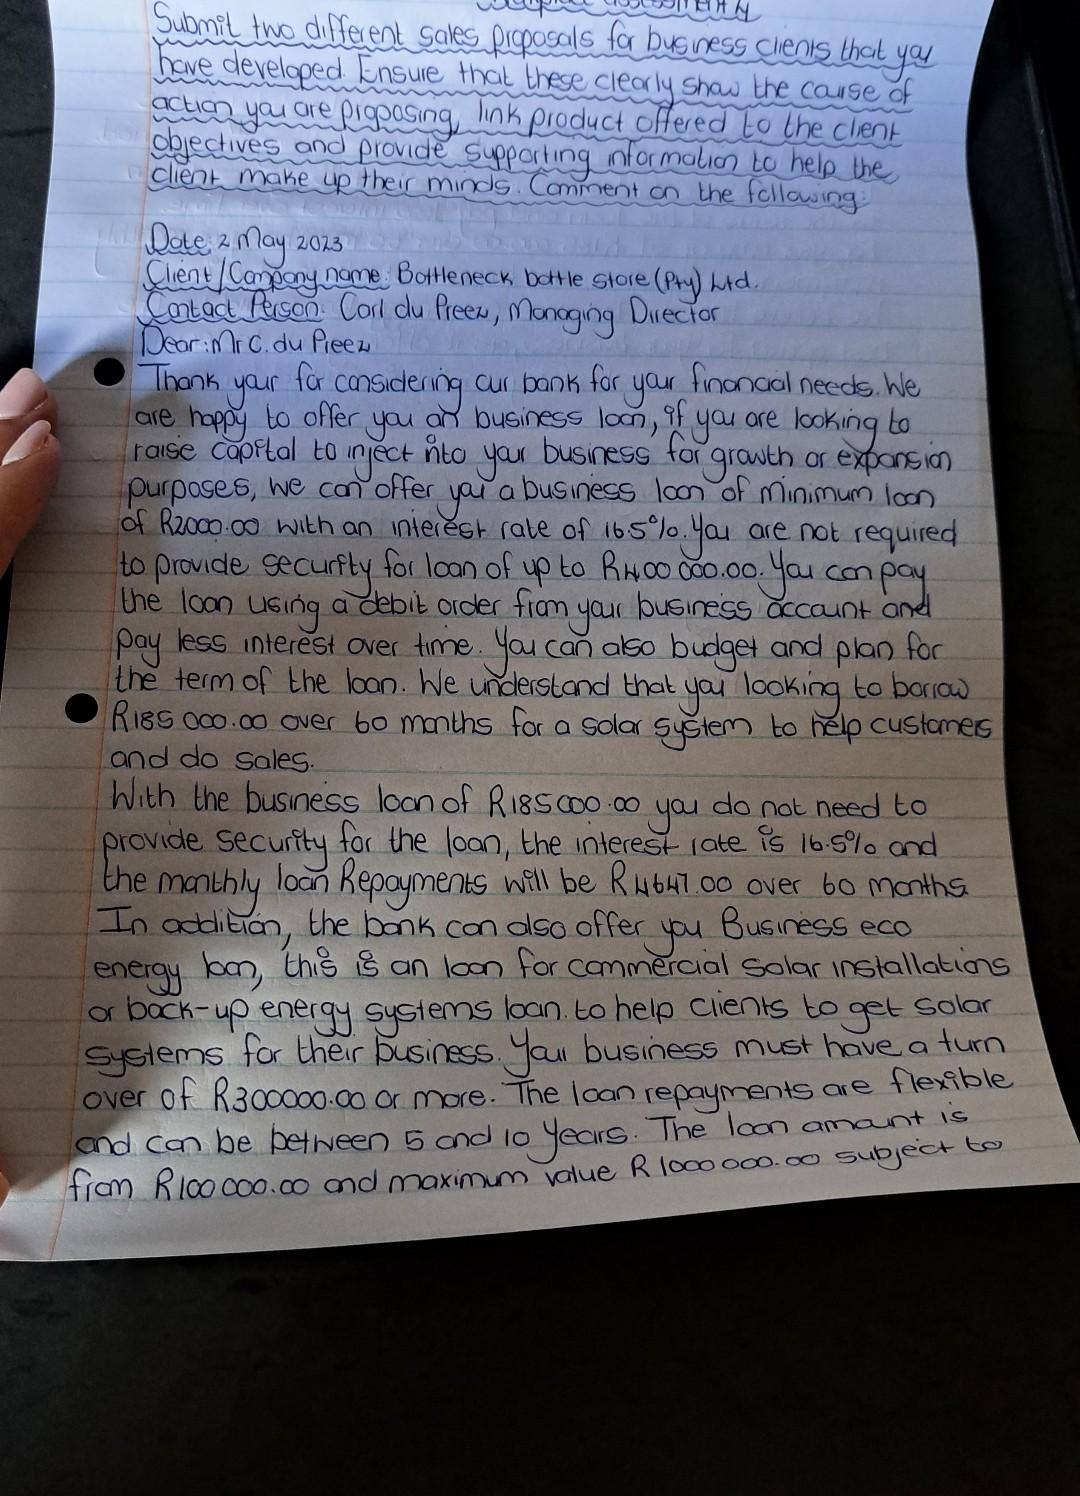 Submit two different sales proposals for business clients that you
have developed. Ensure that these clearly show the cause of
action you are proposing, link product offered to the client
objectives and provide supporting information to help the
client make up their minds. Comment on the following:
Date: 2 May 2023
Client/Company name: Bottleneck bottle store (Pty) Ltd.
Contact Person: Carl du Preez, Managing Director
Dear: Mr C. du Preez
Thank your for considering our bank for your financial needs. We
are happy to offer you an business loan, if you are looking to
raise capital to inject into your business for growth or expansion
purposes, we can offer you a business loan of minimum loan
of R2000.00 with an interest rate of 16.5%. You are not required
to provide security for loan of up to R400 000.00. You can pay
the loan using a debit order from your business account and
pay less interest over time. You can also budget and plan for
the term of the loan. We understand that you looking to borrow
R185 000.00 over 60 months for a solar system to help customers
and do sales.
With the business loan of R185000.00 you do not need to
provide security for the loan, the interest rate is 16.5% and
the monthly loan Repayments will be R4647.00 over 60 months
In addition, the bank can also offer you Business eco
energy loan, this is an loan for commercial solar installations
or back-up energy systems loan. to help clients to get solar
systems for their business. Your business must have a turn
over of R300000.00 or more. The loan repayments are flexible
and can be between 5 and 10 years. The loan amount is
from R100 000.00 and maximum value R1000 000.00 subject to